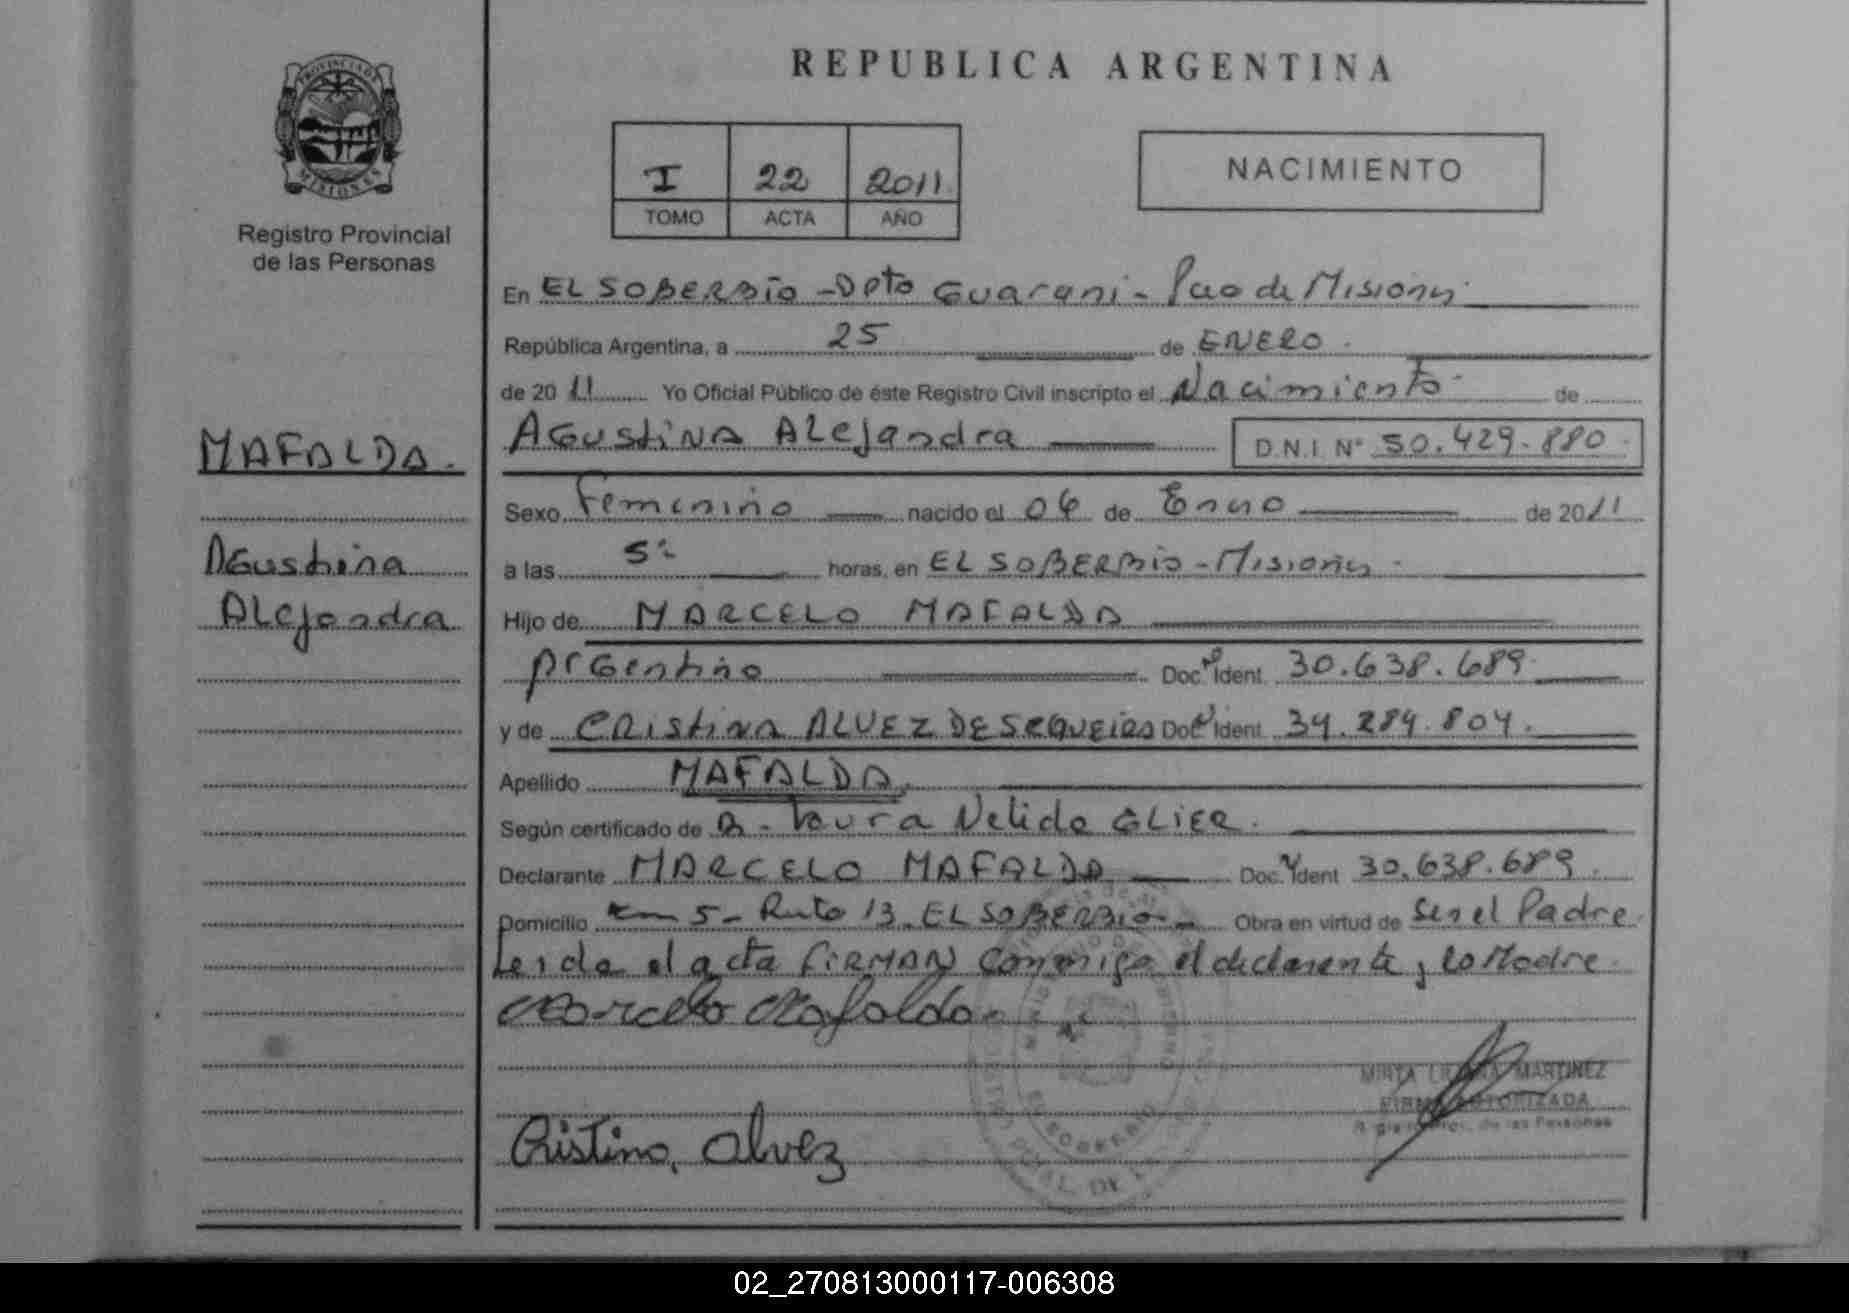 PROVINCIA DE
MISIONES
Registro Provincial
de las Personas
MAFALDA.
Agustina
Alejandra
REPUBLICA ARGENTINA
I 22 2011
TOMO ACTA AÑO
NACIMIENTO
En EL SOBERBIO - Dpto Guarani - Pcia de Misiones
República Argentina, a 25 de ENERO
de 2011 Yo Oficial Público de éste Registro Civil inscripto el Nacimiento de
Agustina Alejandra D.N.I. Nº 50.429.880
Sexo Femenino nacido el 06 de Enero de 2011
a las 5 horas, en EL SOBERBIO - Misiones
Hijo de MARCELO MAFALDA
Argentino Doc. Ident. 30.638.689
y de CRISTINA ALVEZ DE SEQUEIRA Doc. Ident. 34.284.804.
Apellido MAFALDA.
Según certificado de Laura Nelida GLIER.
Declarante MARCELO MAFALDA Doc. Ident 30.638.689.
Domicilio Km 5 - Ruta 13. EL SOBERBIO - Obra en virtud de Ser el Padre
Leida el acta FIRMAN conmigo el declarante y la Madre
Marcelo Mafalda
MIRTA MARTINEZ
FIRMA AUTORIZADA
de las Personas
Cristina, Alvez
EL SOBERBIO
02_270813000117-006308